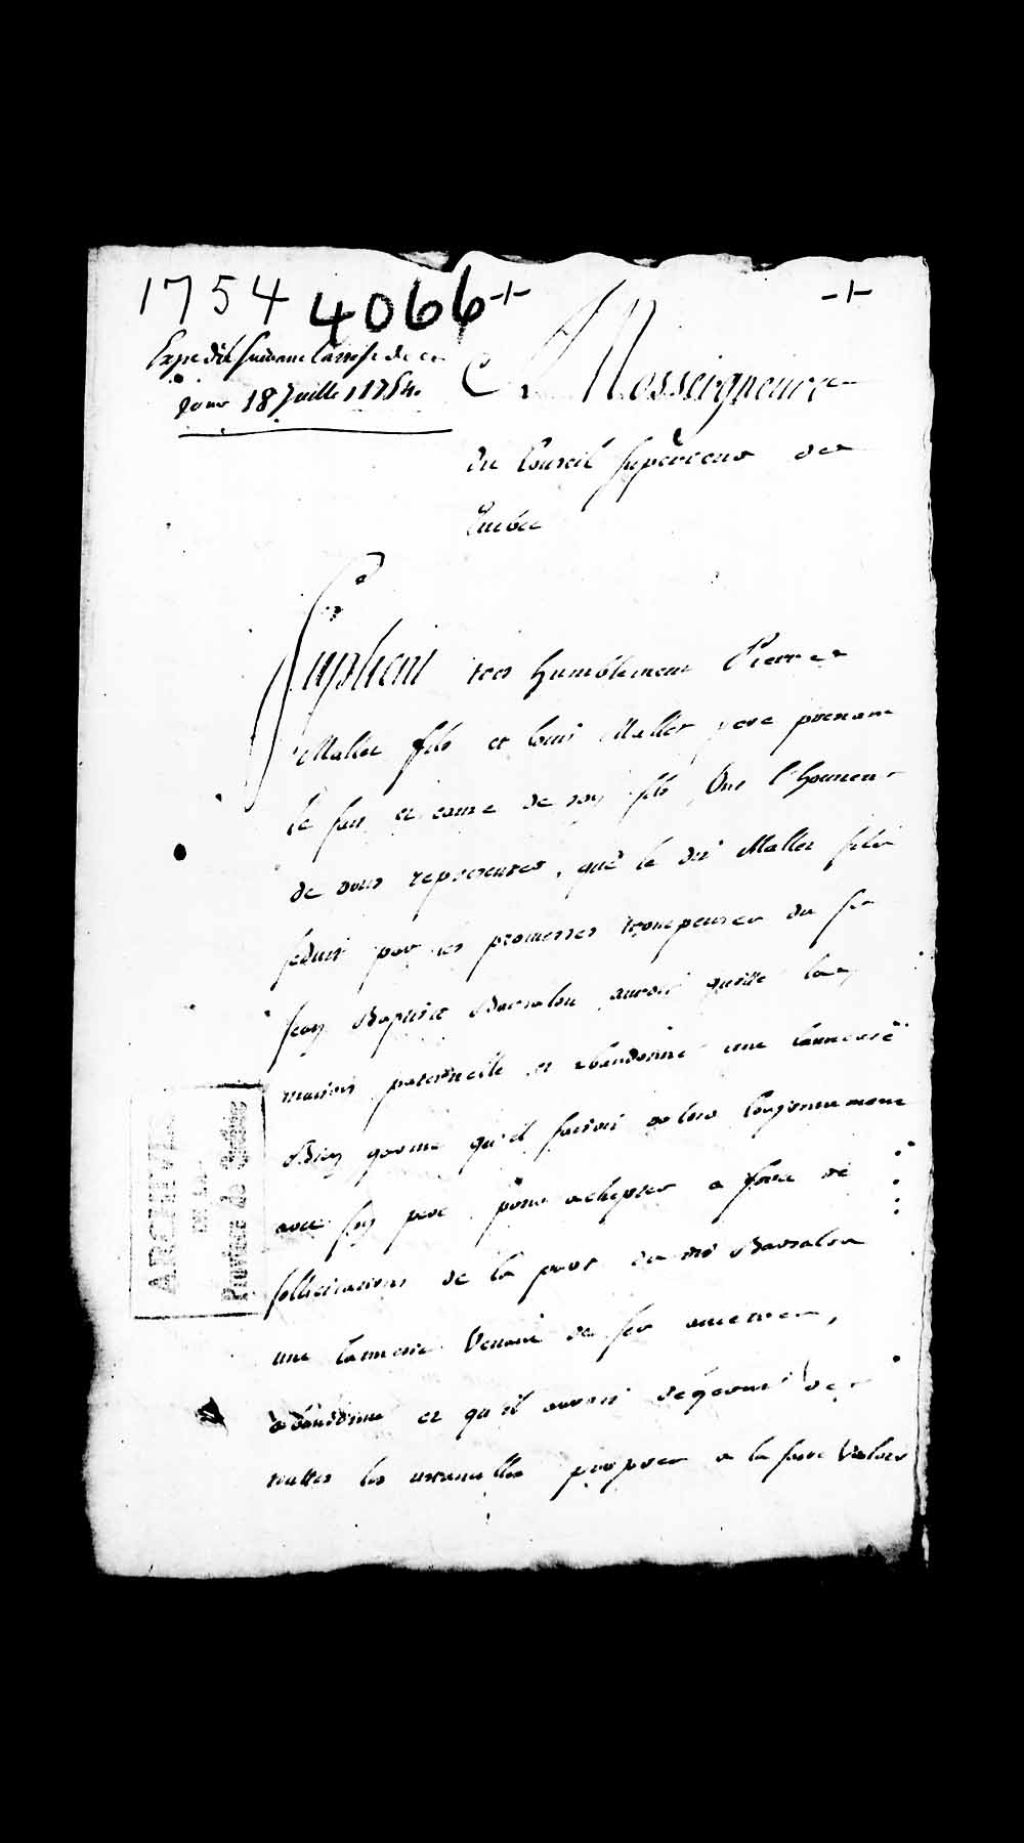 1754 4066
Expedié suivant l'arrest de ce
jour 18 Juillet 1754.
A Nosseigneurs
du Conseil superieur de
Quebec
Suplient tres humblement Pierre
Mallet fils et louis Mallet pere prenant
le fait et cause de son fils Ont l'honneur
de vous representer, que le dit Mallet fils
seduit par les promesses trompeuses du sr
Jean Baptiste Barsalou auroit quitté la
maison paternelle et abandonné une tannerie
Bien garnie qu'il faisoit valoir conjointement
avec son pere pour achepter a force de
sollicitations de la part du dit Barsalou
une tannerie Venant de ses
abandonné et qu'il avoit degarni de
touttes les ustancilles propres a la faire Valoir
ARCHIVES
DE LA
Province de Québec